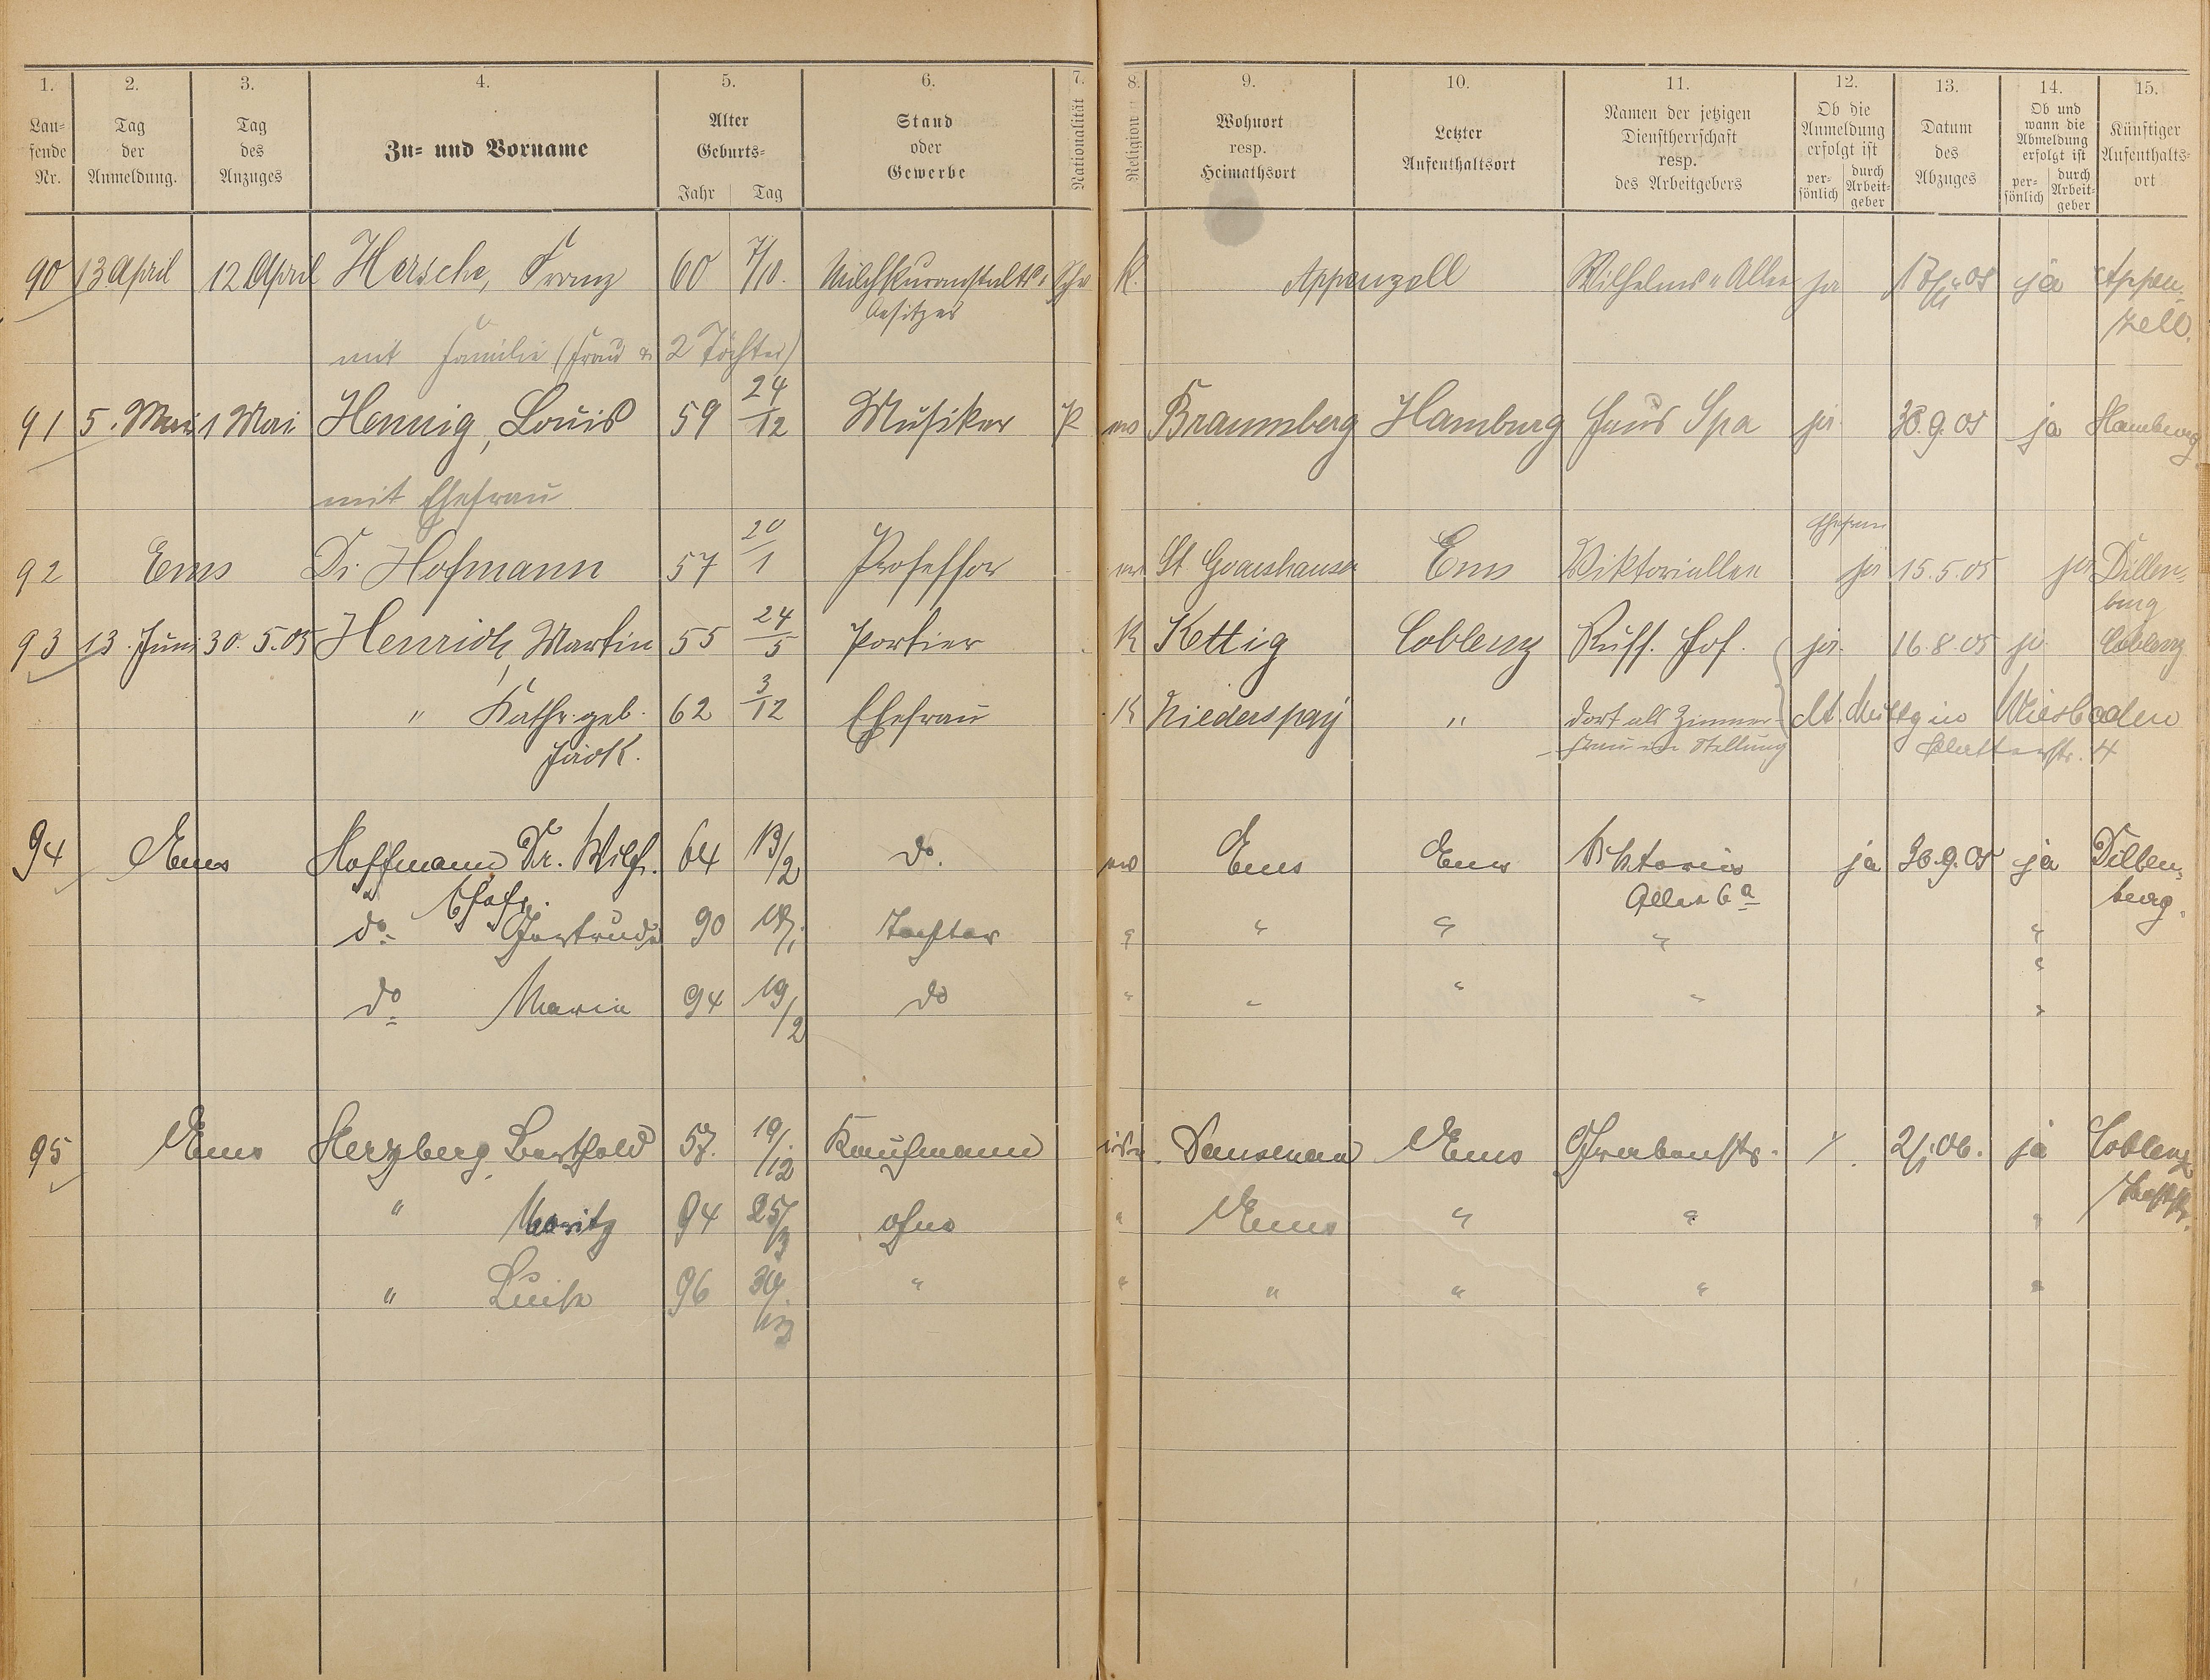 1. 2. 3. 4. 5. 6. 7. 8. 9. 10. 11. 12. 13. 14. 15.
Lau-
fende
Nr.
Tag
der
Anmeldung.
Tag
des
Anzuges
Zu- und Vorname
Alter
Geburts-
Jahr Tag
Stand
oder
Gewerbe
Nationalität
Religion
Wohnort
resp.
Heimathsort
Letzter
Aufenthaltsort
Namen der jetzigen
Dienstherrschaft
resp.
des Arbeitgebers
Ob die
Anmeldung
erfolgt ist
per-
sönlich
durch
Arbeit-
geber
Datum
des
Abzuges
Ob und
wann die
Abmeldung
erfolgt ist
per-
sönlich
durch
Arbeit-
geber
Künftiger
Aufenthalts-
ort
90 13 April 12 April Hersche, Franz 60 7/10. Milchkuranstalts- Schw K. Appenzell Wilhelms-Allee ja 05 ja Appen-
Besitzer zell.
mit Familie (Frau u. 2 Töchter)
91 5. Mai 1 Mai Hennig, Louis 59 24/12 Musiker P ev Braunsberg Hamburg Haus Spa ja 30.9.05 ja Hamburg
mit Ehefrau
Ehefrau
92 Ems Dr. Hofmann 57 20/1 Professor ev St Goarshausen Ems Viktoriallee ja 15.5.05 ja Dillen-
burg
93 13. Juni 30. 5.05 Henrich, Martin 55 24/5 Portier K Kettig Coblenz Russ. Hof. ja. 16.8.05 ja Coblenz
" Kathr. geb. 62 3/12 Ehefrau K Niederspay " dort als Zimmer- Wiesbaden
Jäck. frau in Stellung 4
94 Ems Hoffmann Dr. Wilh. 64 13/2 do. ev Ems Ems Viktoria ja 30.9.05 ja Dillen-
Ehefr. Allee 6a burg.
do. Gertrude 90 18/1 Tochter " " " " "
do Marie 94 19/2 do " " " " "
95 Ems Herzberg, Berthold 57. 19/12 Kaufmann isr. Dausenau Ems Grabenstr. 2/1.06. ja Coblenz
" Moritz 94 25/3 ohne " Ems " " "
" Luise 96 30/ " " " " " "